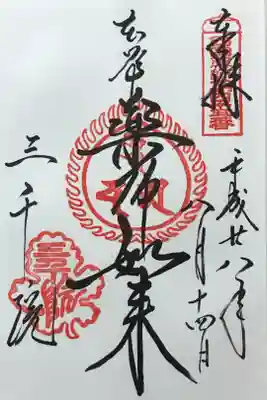 奉拝
平成廿八年
八月十四日
薬師如来
三千院